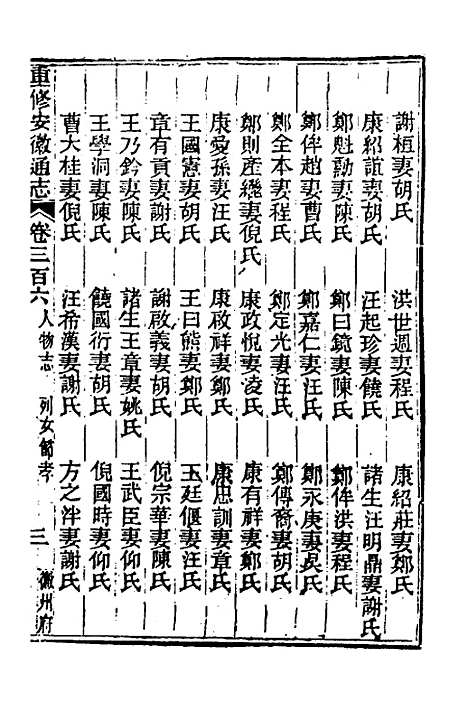 謝桓妻胡氏　洪世週妻程氏　康紹莊妻鄭氏
康紹誼妻胡氏　汪起珍妻饒氏　諸生汪明鼎妻謝氏
鄭魁勳妻陳氏　鄭曰鏡妻陳氏　鄭侔洪妻程氏
鄭侔趙妻曹氏　鄭嘉仁妻汪氏　鄭永庚妻吳氏
鄭全本妻程氏　鄭定光妻汪氏　鄭傳裔妻胡氏
鄭則產繼妻倪氏　康政悅妻凌氏　康有祥妻鄭氏
康愛孫妻汪氏　康啟祥妻鄭氏　康思訓妻章氏
王國憲妻胡氏　王曰熊妻鄭氏　王廷偃妻汪氏
章有貢妻謝氏　謝啟義妻胡氏　倪宗華妻陳氏
王乃鈐妻陳氏　諸生王章妻姚氏　王武臣妻仰氏
王學洞妻陳氏　饒國衍妻胡氏　倪國時妻仰氏
曹大桂妻倪氏　汪希漢妻謝氏　方之泮妻謝氏
重修安徽通志　卷三百六　人物志　列女節孝　三　徽州府